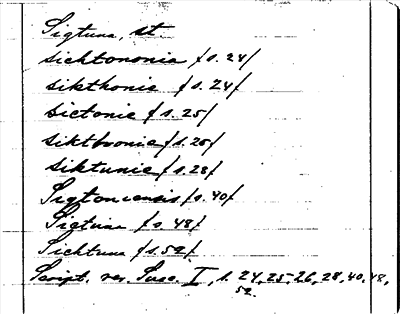 Sigtuna, st
sichtononia /s. 24/
sikthonie /s. 24/
sictonie /s. 25/
siktbronie /s. 26/
siktunie /s. 28/
Sigtoncensis /s. 40/
Sictuna /s. 48/
Sichtuna /s. 52/
Script. rer. Suec. I, s. 24, 25, 26, 28, 40, 48,
52.